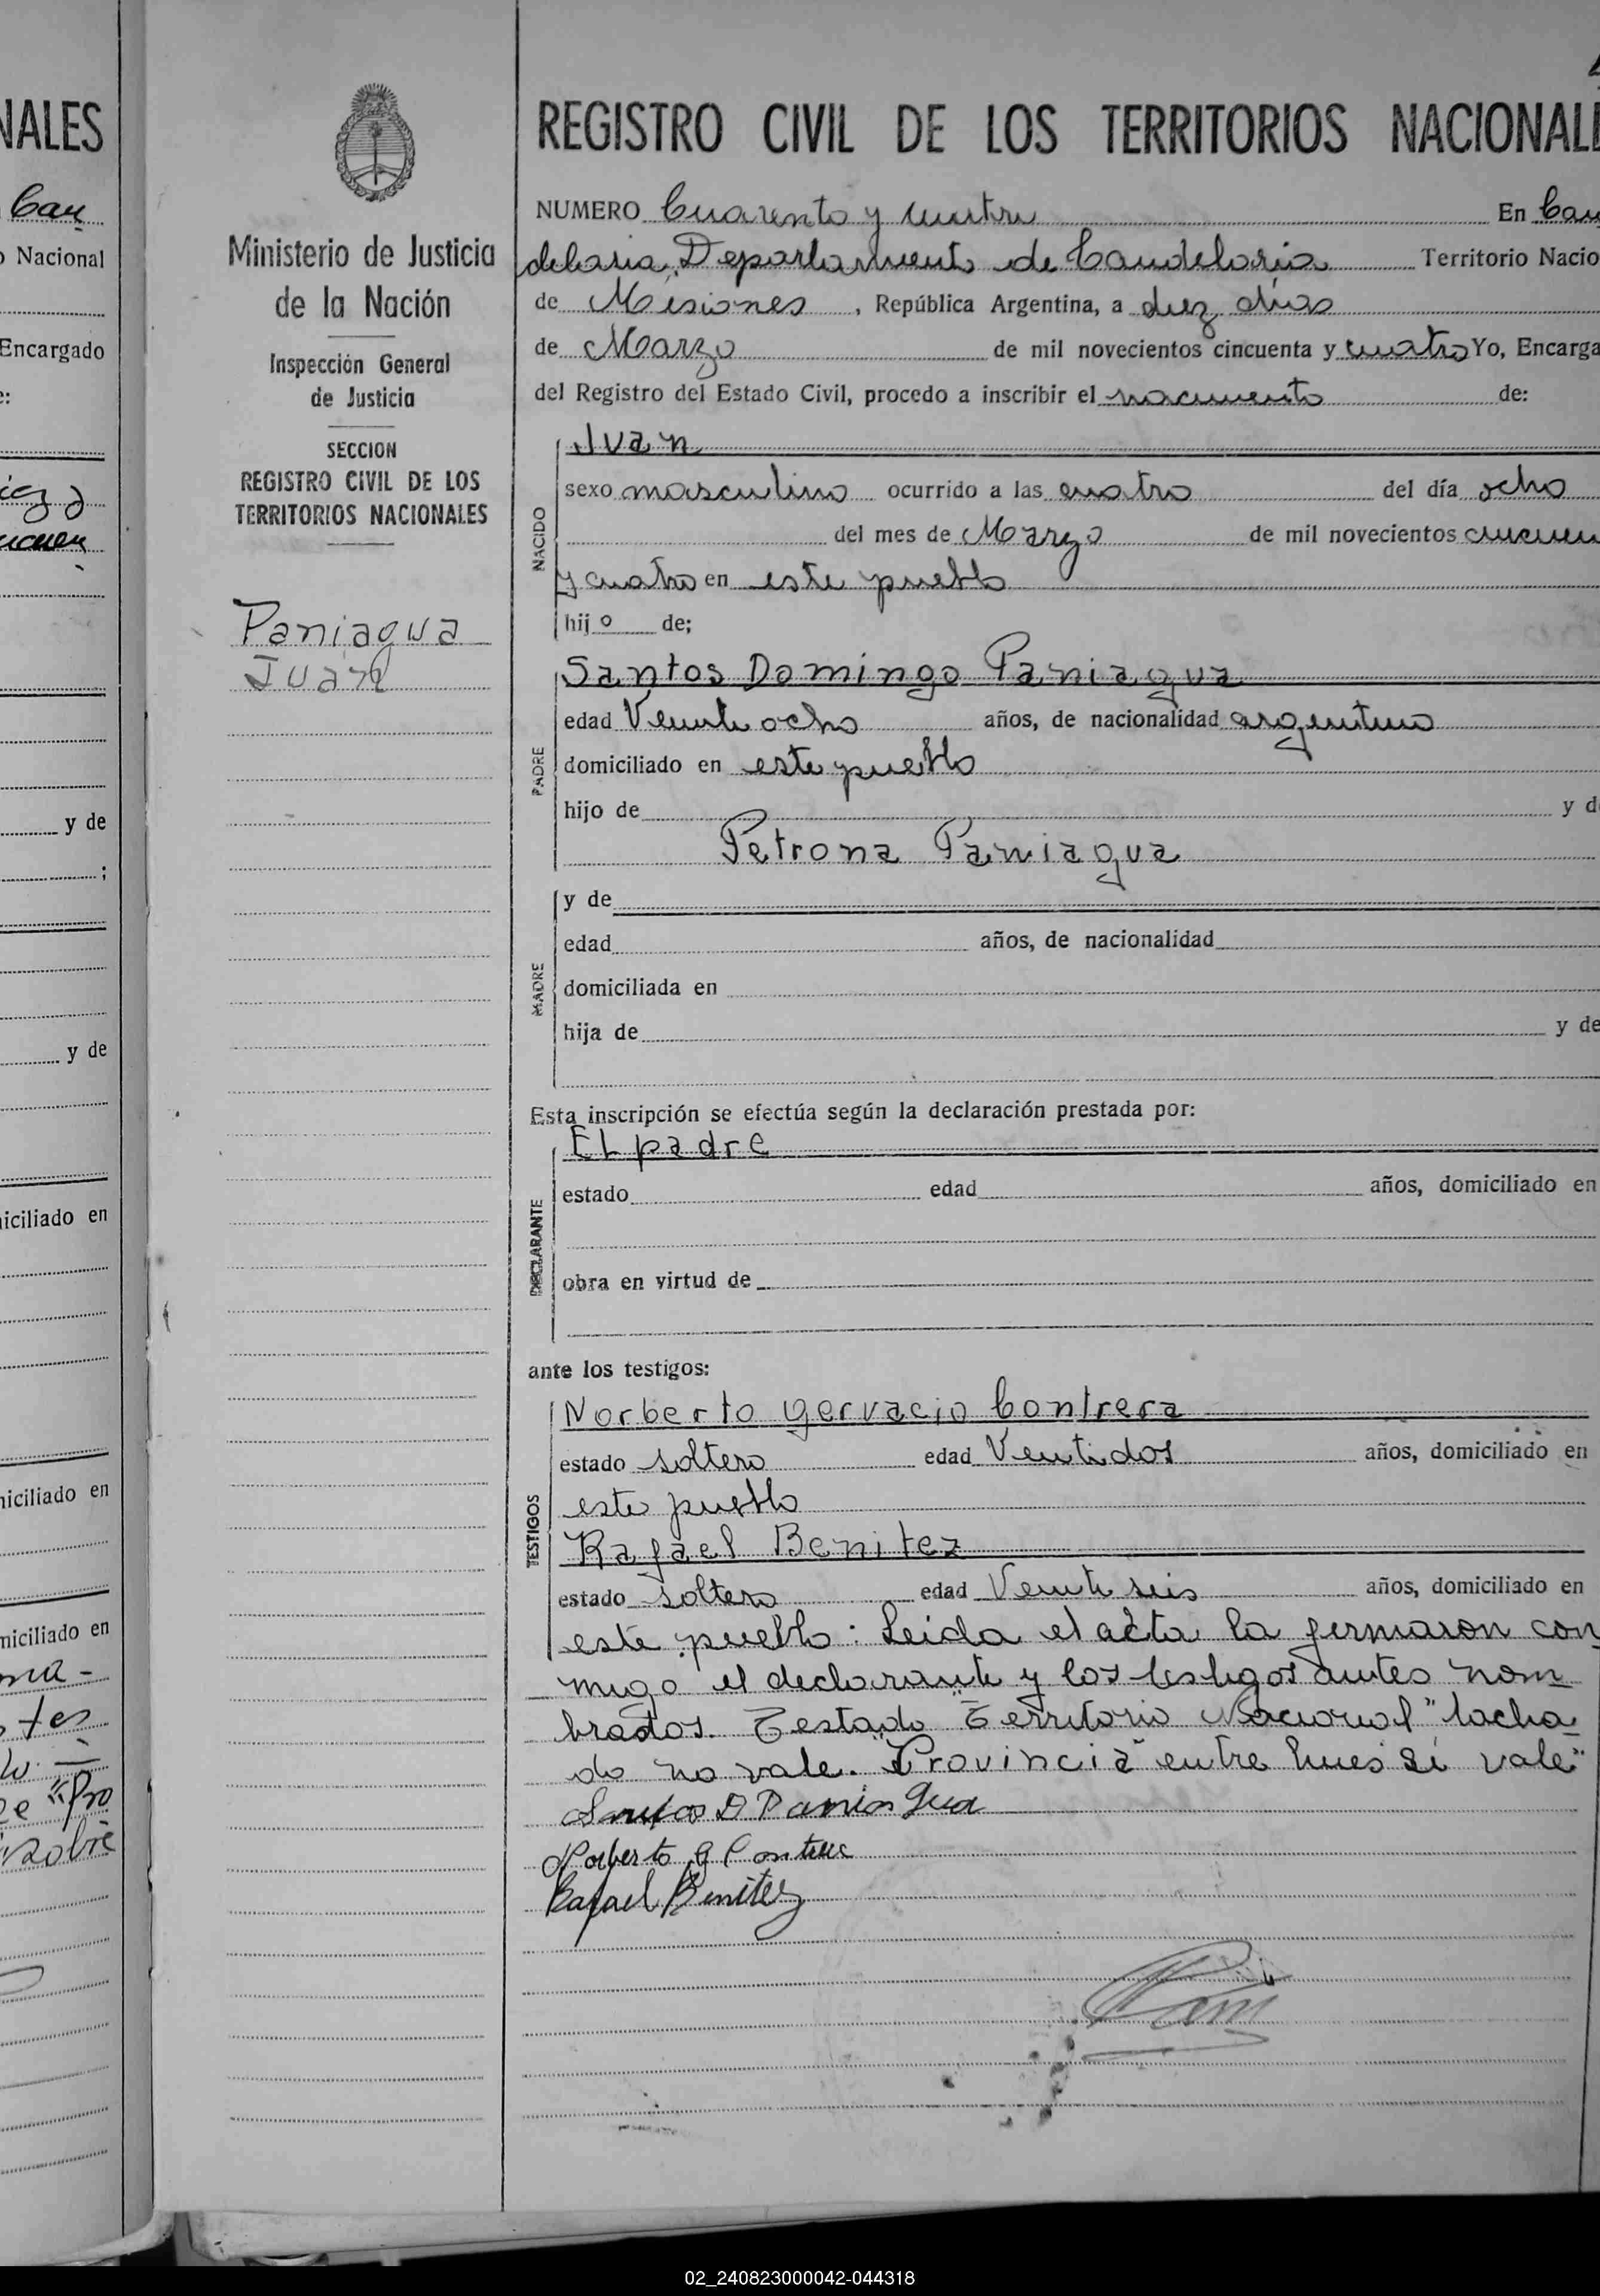 NALES
Can
o Nacional
Encargado
e:
y de
;
y de
niciliado en
niciliado en
miciliado en
"Pro
sobre
Ministerio de Justicia
de la Nación
Inspección General
de Justicia
SECCION
REGISTRO CIVIL DE LOS
TERRITORIOS NACIONALES
Paniagua
Juan
REGISTRO CIVIL DE LOS TERRITORIOS NACIONALE
NUMERO Cuarenta y cuatro En Can
delaria, Departamento de Candelaria Territorio Nacio
de Misiones, República Argentina, a diez días
de Marzo de mil novecientos cincuenta y cuatro Yo, Encarga
del Registro del Estado Civil, procedo a inscribir el nacimiento de:
NACIDO
Juan
sexo masculino ocurrido a las cuatro del día ocho
del mes de Marzo de mil novecientos cincuen
y cuatro en este pueblo
hijo de;
PADRE
Santos Domingo Paniagua
edad Veinte ocho años, de nacionalidad argentino
domiciliado en este pueblo
hijo de y d
Petrona Paniagua
MADRE
y de
edad años, de nacionalidad
domiciliada en
hija de y de
Esta inscripción se efectúa según la declaración prestada por:
DECLARANTE
EL padre
estado edad años, domiciliado en
obra en virtud de
ante los testigos:
TESTIGOS
Norberto Gervacio Contrera
estado soltero edad Ventidos años, domiciliado en
este pueblo
Rafael Benitez
estado soltero edad Veinte seis años, domiciliado en
este pueblo: Leida el acta la firmaron con
migo el declarante y los testigos antes nom
brados. Testado "Territorio Nacional" tacha
do no vale. "Provincia" entre lineas si vale"
Santos D Paniagua
Norberto G Contrera
Rafael Benitez
02_240823000042-044318